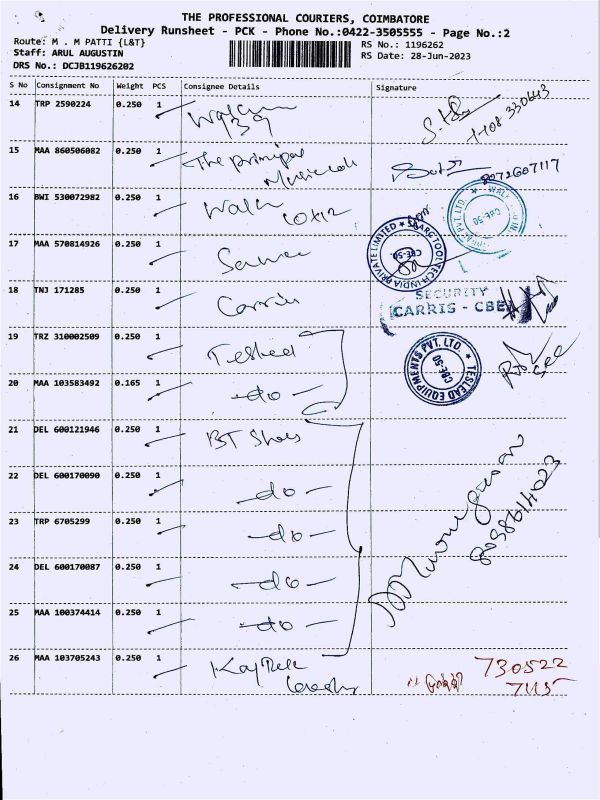 THE PROFESSIONAL COURIERS, COIMBATORE
Delivery Runsheet - PCK - Phone No.:0422-3505555 - Page No.:2
Route: M . M PATTI {L&T}
Staff: ARUL AUGUSTIN
DRS No.: DCJB119626202
RS No.: 1196262
RS Date: 28-Jun-2023
S No Consignment No Weight PCS Consignee Details Signature
14 TRP 2590224 0.250 1
15 MAA 860506082 0.250 1 The principal
8072607117
16 BWI 530072982 0.250 1
17 MAA 570814926 0.250 1
SAARC TOOLTECH INDIA PRIVATE LIMITED
CBE-50.
18 TNJ 171285 0.250 1 Carris
SECURITY
CARRIS - CBE
19 TRZ 310002509 0.250 1 Teslead
TESLEAD EQUIPMENTS PVT. LTD.
CBE-50
20 MAA 103583492 0.165 1 -do-
21 DEL 600121946 0.250 1 BT Shoes
22 DEL 600170090 0.250 1 -do-
23 TRP 6705299 0.250 1 -do-
24 DEL 600170087 0.250 1 -do-
25 MAA 100374414 0.250 1 -do-
26 MAA 103705243 0.250 1
730522
7115